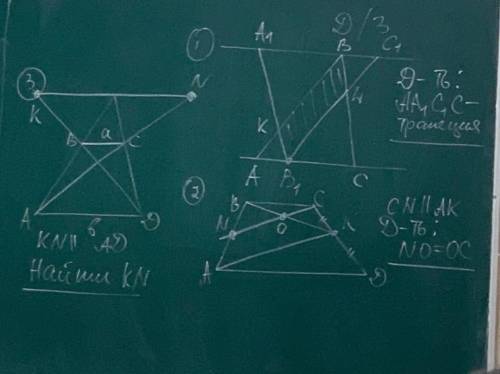 Д/З
①
A₁
B
C₁
K
L
A
B₁
C
Д-ть:
AA₁C₁C-
трапеция
②
B
C
N
O
K
A
D
CN∥AK
Д-ть:
NO=OC
③
K
N
B
a
C
A
b
D
KN∥AD
Найти KN